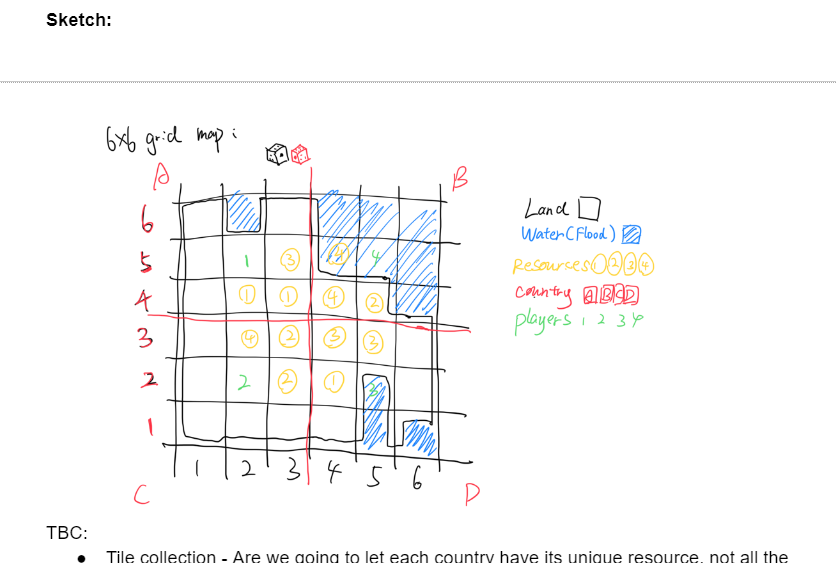 Sketch:
6x6 grid map:
A
B
6
5 1 3 4
4 1 1 4 2
3 4 2 3 3
2 2 2 1 3
1
1 2 3 4 5 6
C
D
Land
Water(Flood)
Resources 1 2 3 4
Country A B C D
players 1 2 3 4
TBC:
● Tile collection - Are we going to let each country have its unique resource, not all the